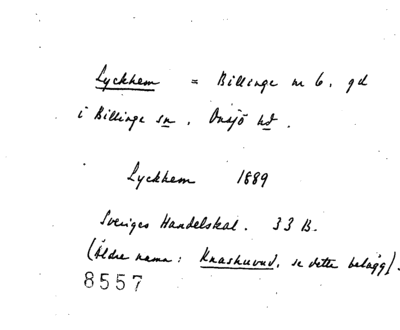 Lyckhem = Billinge nr 6. gd
i Billinge sn. Onsjö hd.
Lyckhem 1889
Sveriges Handelskal. 33 B.
(Äldre namn: Knashuvud, se detta belägg).
8557